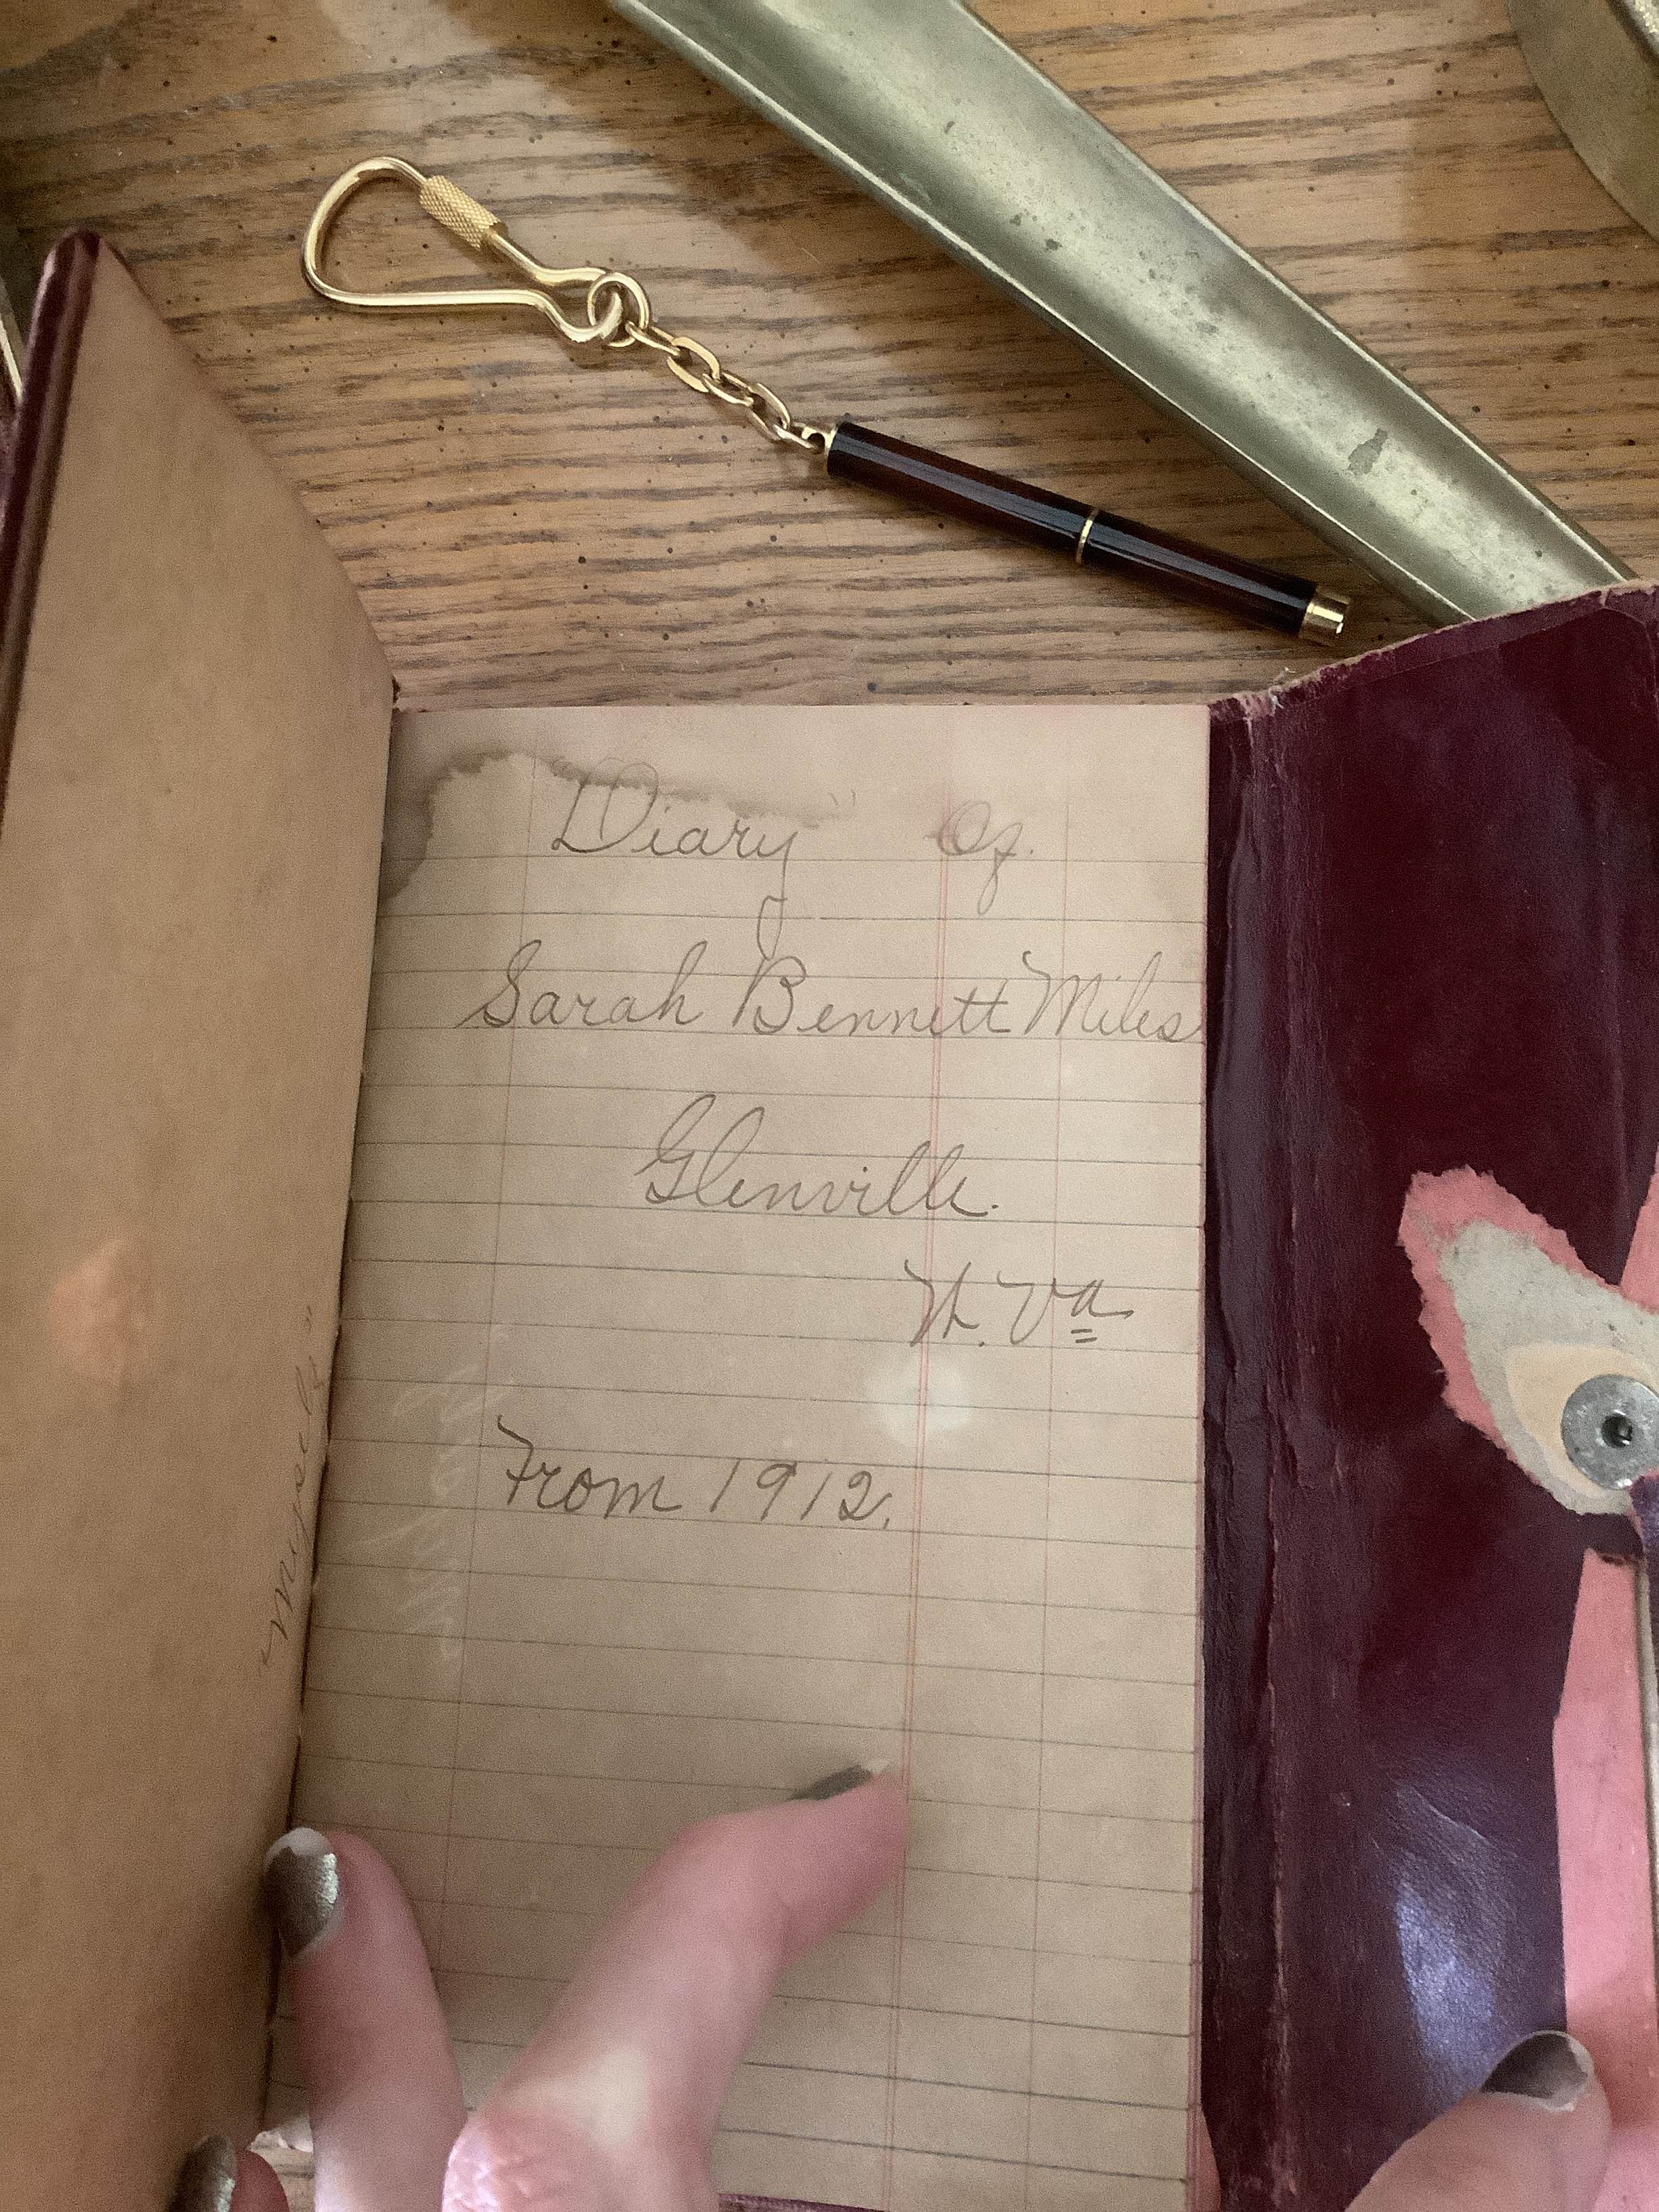 "Diary" Of.
Sarah Bennett Miles
Glenville.
W. Va
From 1912.
"Myself"